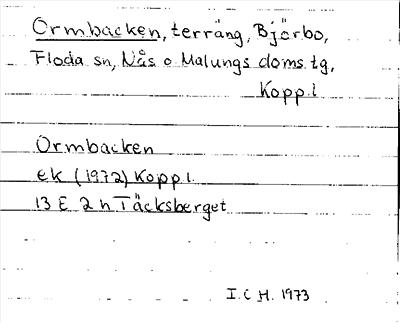 Ormbacken, terräng, Björbo,
Floda sn, Nås o Malungs doms.tg,
Kopp.l
Ormbacken
ek (1972) Kopp l.
13 E 2 h Täcksberget
I. C H. 1973